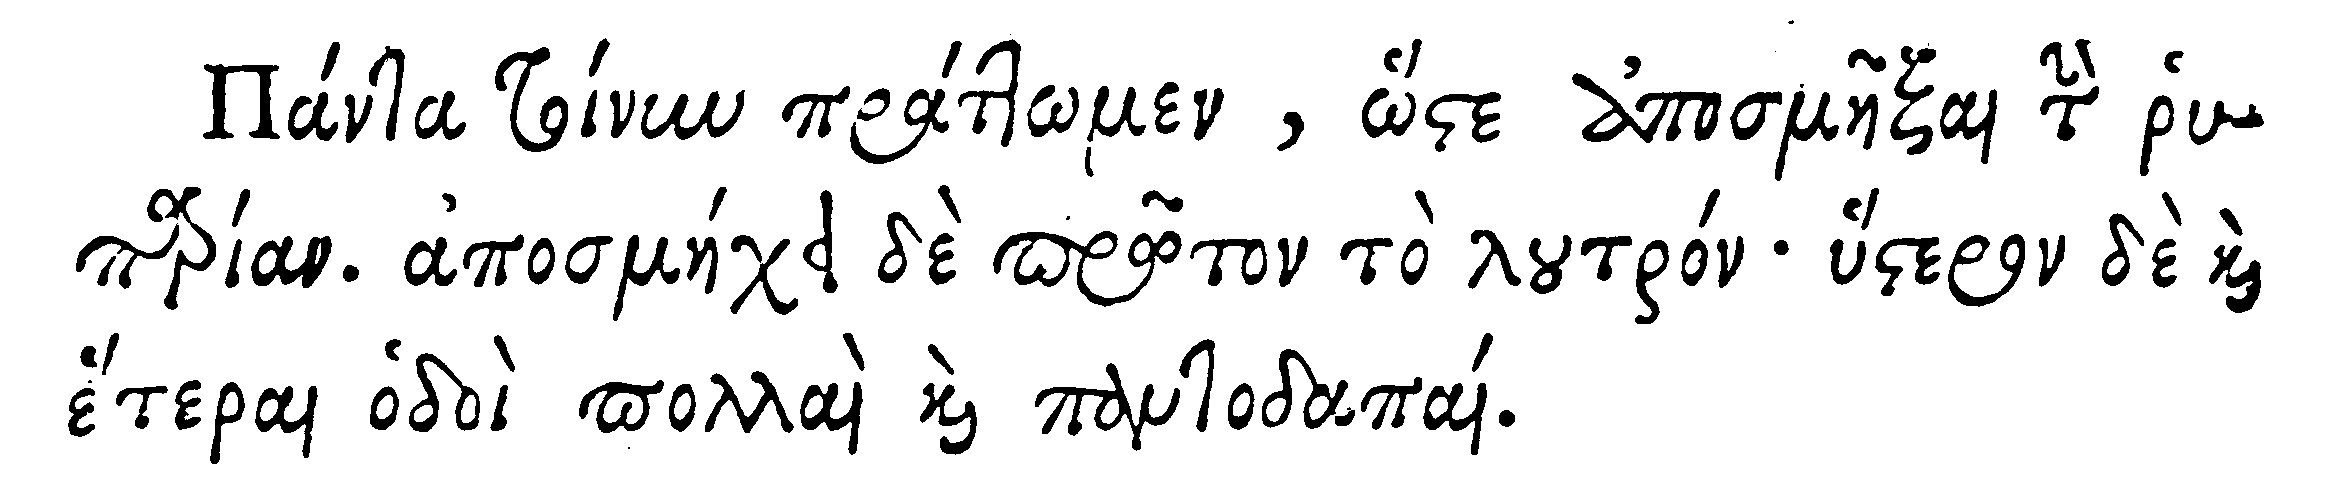 Πάντα τοίνυν πράττωμεν, ὥστε ἀποσμῆξαι τὴν ῥυ-
παρίαν. ἀποσμήχει δὲ πρῶτον τὸ λουτρόν· ὕστερον δὲ καὶ
ἕτεραι ὁδοὶ πολλαὶ καὶ παντοδαπαί.